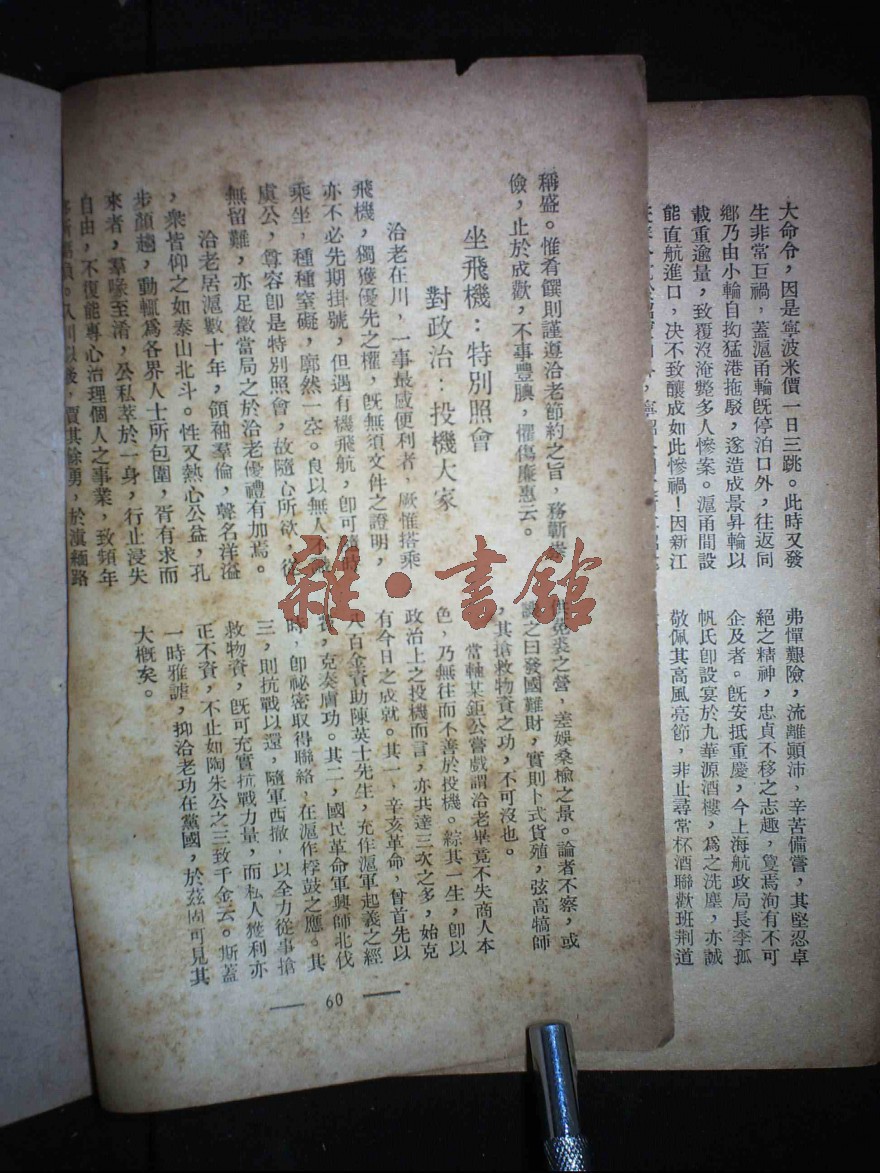 大命令，因是寧波米價一日三跳。此時又發
生非常巨禍，蓋滬甬輪旣停泊口外，往返同
鄉乃由小輪自拘猛港拖駁，遂造成景昇輪以
載重逾量，致覆沒淹斃多人慘案。滬甬間設
能直航進口，决不致釀成如此慘禍！因新江
弗憚艱險，流離顚沛，辛苦備嘗，其堅忍卓
絕之精神，忠貞不移之志趣，敻焉洵有不可
企及者。旣安抵重慶，今上海航政局長李孤
帆氏卽設宴於九華源酒樓，爲之洗塵，亦誠
敬佩其高風亮節，非止尋常杯酒聯歡班荆道
稱盛。惟肴饌則謹遵洽老節約之旨，務蘄
儉，止於成歡，不事豐腆，懼傷廉惠云。
坐飛機：特別照會
對政治：投機大家
洽老在川，一事最感便利者，厥惟搭乘
飛機，獨獲優先之權，旣無須文件之證明，
亦不必先期掛號，但遇有機飛航，卽可隨時
乘坐，種種窒礙，廓然一空。良以無人不識
虞公，尊容卽是特別照會，故隨心所欲，從
無留難，亦足徵當局之於洽老優禮有加焉。
洽老居滬數十年，領袖羣倫，聲名洋溢
，衆皆仰之如泰山北斗。性又熱心公益，孔
步顏趨，動輒爲各界人士所包圍，胥有求而
來者，羣喙至淆，公私萃於一身，行止浸失
自由，不復能專心治理個人之事業，致頻年
賈其餘勇，於滇緬路
菟裘之營，差娛桑楡之景。論者不察，或
謔之曰發國難財，實則卜式貨殖，弦高犒師
，其搶救物資之功，不可沒也。
當軸某鉅公嘗戲謂洽老畢竟不失商人本
色，乃無往而不善於投機。綜其一生，卽以
政治上之投機而言，亦共達三次之多，始克
有今日之成就。其一，辛亥革命，曾首先以
八百金資助陳英士先生，充作滬軍起義之經
費，克奏膚功。其二，國民革命軍興師北伐
時，卽祕密取得聯絡，在滬作桴鼓之應。其
三，則抗戰以還，隨軍西撤，以全力從事搶
救物資，旣可充實抗戰力量，而私人獲利亦
正不資，不止如陶朱公之三致千金云。斯蓋
一時雅謔，抑洽老功在黨國，於茲固可見其
大槪矣。
60
雜·書館